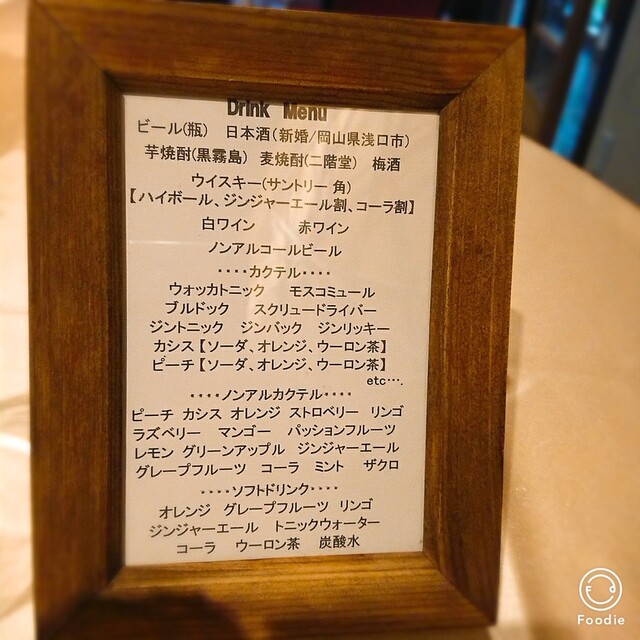 Drink Menu
ビール(瓶) 日本酒(新婚/岡山県浅口市)
芋焼酎(黒霧島) 麦焼酎(二階堂) 梅酒
ウイスキー(サントリー 角)
【ハイボール、ジンジャーエール割、コーラ割】
白ワイン 赤ワイン
ノンアルコールビール
････カクテル････
ウォッカトニック モスコミュール
ブルドック スクリュードライバー
ジントニック ジンバック ジンリッキー
カシス【ソーダ、オレンジ、ウーロン茶】
ピーチ【ソーダ、オレンジ、ウーロン茶】
etc….
････ノンアルカクテル････
ピーチ カシス オレンジ ストロベリー リンゴ
ラズベリー マンゴー パッションフルーツ
レモン グリーンアップル ジンジャーエール
グレープフルーツ コーラ ミント ザクロ
････ソフトドリンク････
オレンジ グレープフルーツ リンゴ
ジンジャーエール トニックウォーター
コーラ ウーロン茶 炭酸水
Foodie